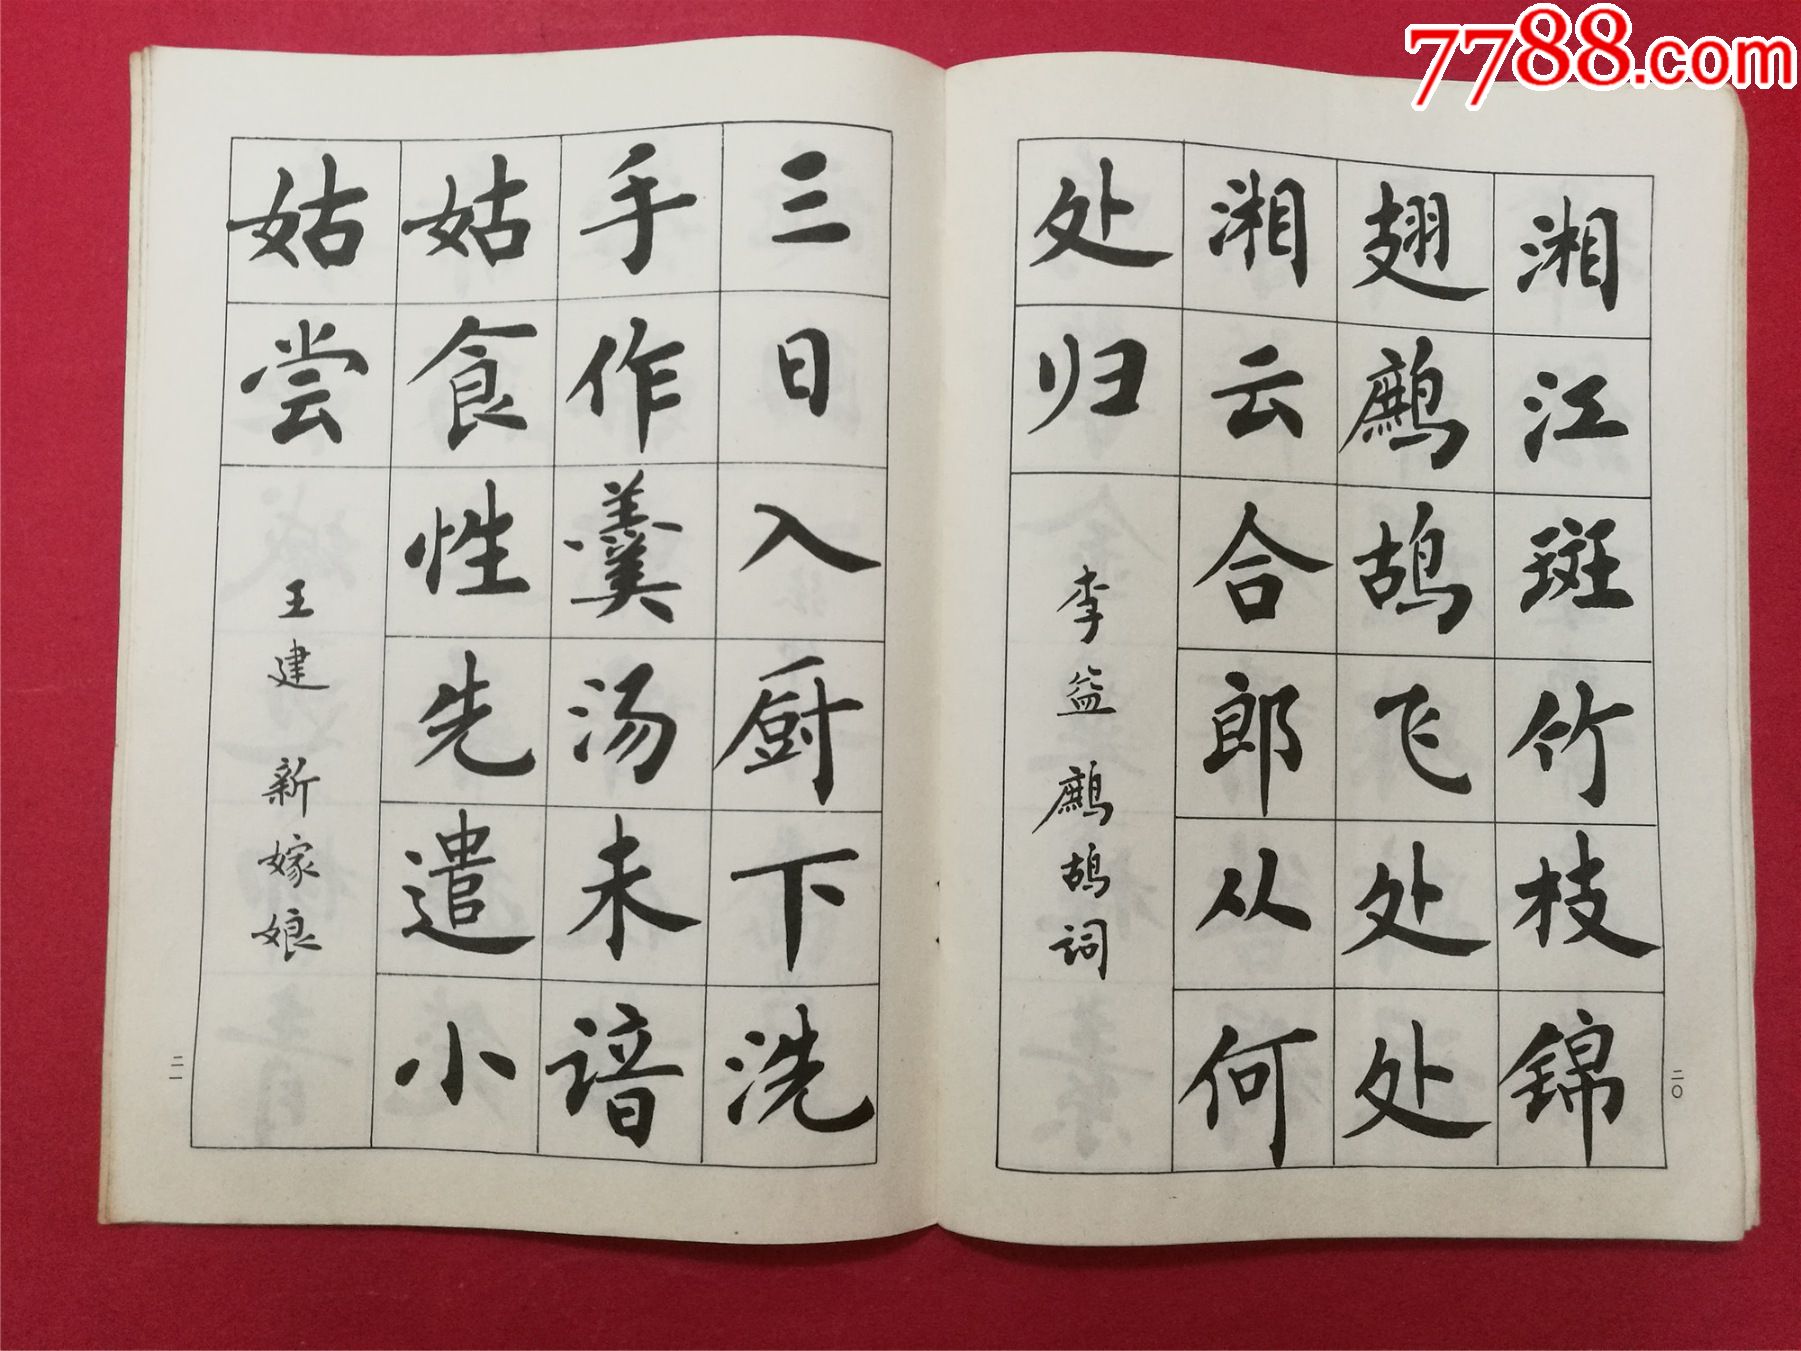 7788.com
湘江斑竹枝锦
翅鹧鸪飞处处
湘云合郎从何
处归
李益 鹧鸪词
二〇
三日入厨下洗
手作羹汤未谙
姑食性先遣小
姑尝
王建 新嫁娘
二一